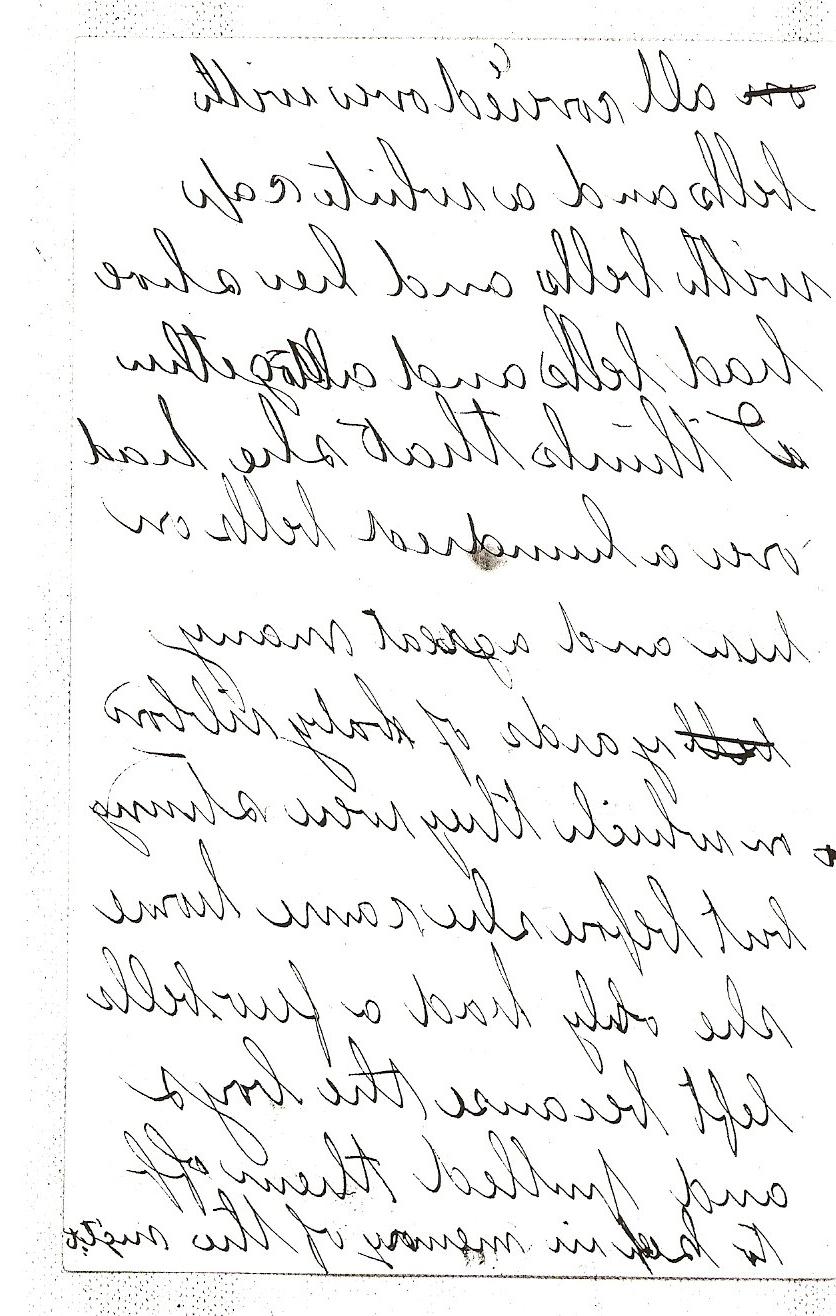 on all covried over with
bells and a white cap
with bells and her shoe
had bells and altogether
I think that she had
over a hundred bells on
her and a great many
bell yards of baby ribbon
on which they were strung
but before she came home
she only had a few bells
left because the boys
and pulled them off
to keep in memory of the